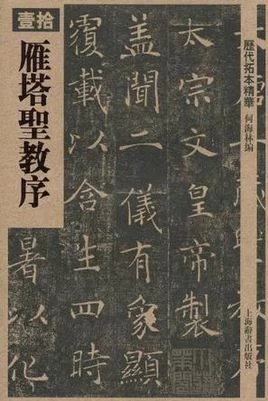 拾壹
雁塔聖教序
歷代拓本精華
何海林編
上海辭書出版社
太宗文皇帝製
盖聞二儀有象顯
覆載以含生四時
暑以化